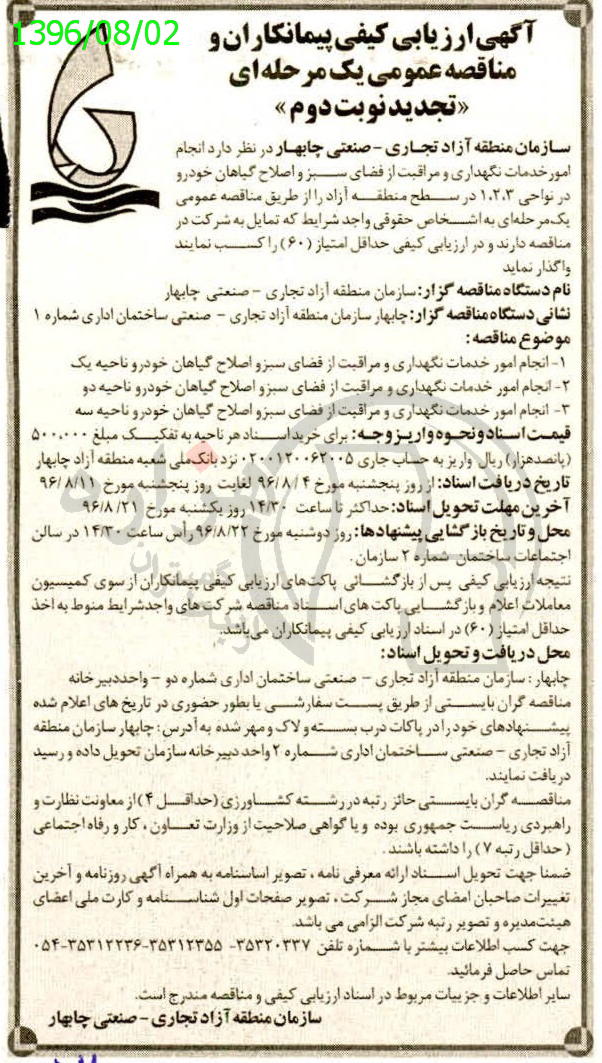 1396/08/02
آگهی ارزیابی کیفی پیمانکاران و
مناقصه عمومی یک مرحله‌ای
«تجدید نوبت دوم»
سازمان منطقه آزاد تجاری - صنعتی چابهار در نظر دارد انجام
امور خدمات نگهداری و مراقبت از فضای سبز و اصلاح گیاهان خودرو
در نواحی ۱،۲،۳ در سطح منطقه آزاد را از طریق مناقصه عمومی
یک‌مرحله‌ای به اشخاص حقوقی واجد شرایط که تمایل به شرکت در
مناقصه دارند و در ارزیابی کیفی حداقل امتیاز (۶۰) را کسب نمایند
واگذار نماید
نام دستگاه مناقصه گزار: سازمان منطقه آزاد تجاری - صنعتی چابهار
نشانی دستگاه مناقصه گزار: چابهار سازمان منطقه آزاد تجاری - صنعتی ساختمان اداری شماره ۱
موضوع مناقصه:
۱- انجام امور خدمات نگهداری و مراقبت از فضای سبز و اصلاح گیاهان خودرو ناحیه یک
۲- انجام امور خدمات نگهداری و مراقبت از فضای سبز و اصلاح گیاهان خودرو ناحیه دو
۳- انجام امور خدمات نگهداری و مراقبت از فضای سبز و اصلاح گیاهان خودرو ناحیه سه
قیمت اسناد و نحوه واریز وجه: برای خرید اسناد هر ناحیه به تفکیک مبلغ ۵۰۰،۰۰۰
(پانصدهزار) ریال واریز به حساب جاری ۰۲۰۰۱۲۰۰۶۲۰۰۵ نزد بانک ملی شعبه منطقه آزاد چابهار
تاریخ دریافت اسناد: از روز پنجشنبه مورخ ۹۶/۸/۴ لغایت روز پنجشنبه مورخ ۹۶/۸/۱۱
آخرین مهلت تحویل اسناد: حداکثر تا ساعت ۱۴/۳۰ روز یکشنبه مورخ ۹۶/۸/۲۱
محل و تاریخ بازگشایی پیشنهادها: روز دوشنبه مورخ ۹۶/۸/۲۲ رأس ساعت ۱۴/۳۰ در سالن
اجتماعات ساختمان شماره ۲ سازمان.
نتیجه ارزیابی کیفی پس از بازگشائی پاکت‌های ارزیابی کیفی پیمانکاران از سوی کمیسیون
معاملات اعلام و بازگشایی پاکت های اسناد مناقصه شرکت های واجدشرایط منوط به اخذ
حداقل امتیاز (۶۰) در اسناد ارزیابی کیفی پیمانکاران می‌باشد.
محل دریافت و تحویل اسناد:
چابهار: سازمان منطقه آزاد تجاری - صنعتی ساختمان اداری شماره دو - واحددبیرخانه
مناقصه گران بایستی از طریق پست سفارشی یا بطور حضوری در تاریخ های اعلام شده
پیشنهادهای خود را در پاکات درب بسته و لاک و مهر شده به آدرس: چابهار سازمان منطقه
آزاد تجاری - صنعتی ساختمان اداری شماره ۲ واحد دبیرخانه سازمان تحویل داده و رسید
دریافت نمایند.
مناقصه گران بایستی حائز رتبه در رشته کشاورزی (حداقل ۴) از معاونت نظارت و
راهبردی ریاست جمهوری بوده و یا گواهی صلاحیت از وزارت تعاون، کار و رفاه اجتماعی
(حداقل رتبه ۷) را داشته باشند.
ضمنا جهت تحویل اسناد ارائه معرفی نامه، تصویر اساسنامه به همراه آگهی روزنامه و آخرین
تغییرات صاحبان امضای مجاز شرکت، تصویر صفحات اول شناسنامه و کارت ملی اعضای
هیئت‌مدیره و تصویر رتبه شرکت الزامی می باشد.
جهت کسب اطلاعات بیشتر با شماره تلفن ۳۵۳۲۰۳۳۷- ۳۵۳۱۲۳۵۵-۳۵۳۱۲۲۳۶-۰۵۴
تماس حاصل فرمائید.
سایر اطلاعات و جزییات مربوط در اسناد ارزیابی کیفی و مناقصه مندرج است.
سازمان منطقه آزاد تجاری - صنعتی چابهار